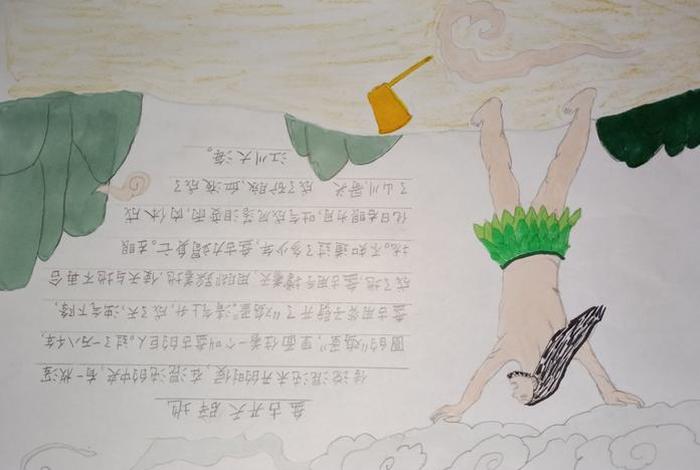 盘古开天辟地
传说混沌未开的时候,在混沌的中央,有一枚浑
圆的“鸡蛋”,里面着一个叫盘古的巨人。过了一万八千年,
盘古用斧子劈开了“鸡蛋”,清气上升,成了天,浊气下降,
成了地,盘古用手撑着天,用脚踩着地,使天与地不再合
拢。不知道过了多少年,盘古力竭身亡。左眼
化日右眼为月,吐气成风落泪变雨,肉体成
了山川,骨头 成了矿脉,血液成了
江川大海。